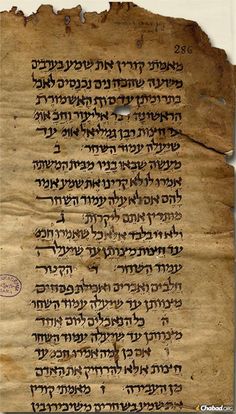 286
מאמתי קורין את שמע בערבים
משעה שהכהנים נכנסים לאכל
בתרומתן עד סוף האשמורת
הראשונה דבר אליעזר וחכ אומ
חצות רבן גמליאל אומ עד
שיעלה עמוד השחר ב
מעשה שבאו בניו מבית המשתה
אמרו לו לא קרינו את שמע אמר
להם אם לא עלה עמוד השחר
מותרין אתם ליקרות ג
ולא זו בלבד אלא כל שאמרו חכמ
עד חצות מצותן עד שיעלה
עמוד השחר הקטר
חלבים ואברים ואכילת פסחים
מצותן עד שיעלה עמוד השחר
ה כל הנאכלים ליום אחד
מצותן עד שיעלה עמוד השחר
ו אם כן למה אמרו חכמ עד
חצות אלא להרחיק את האדם
מן העבירה ז מאמתי קורין
את שמע בשחרים משיכירו בין
Chabad.org